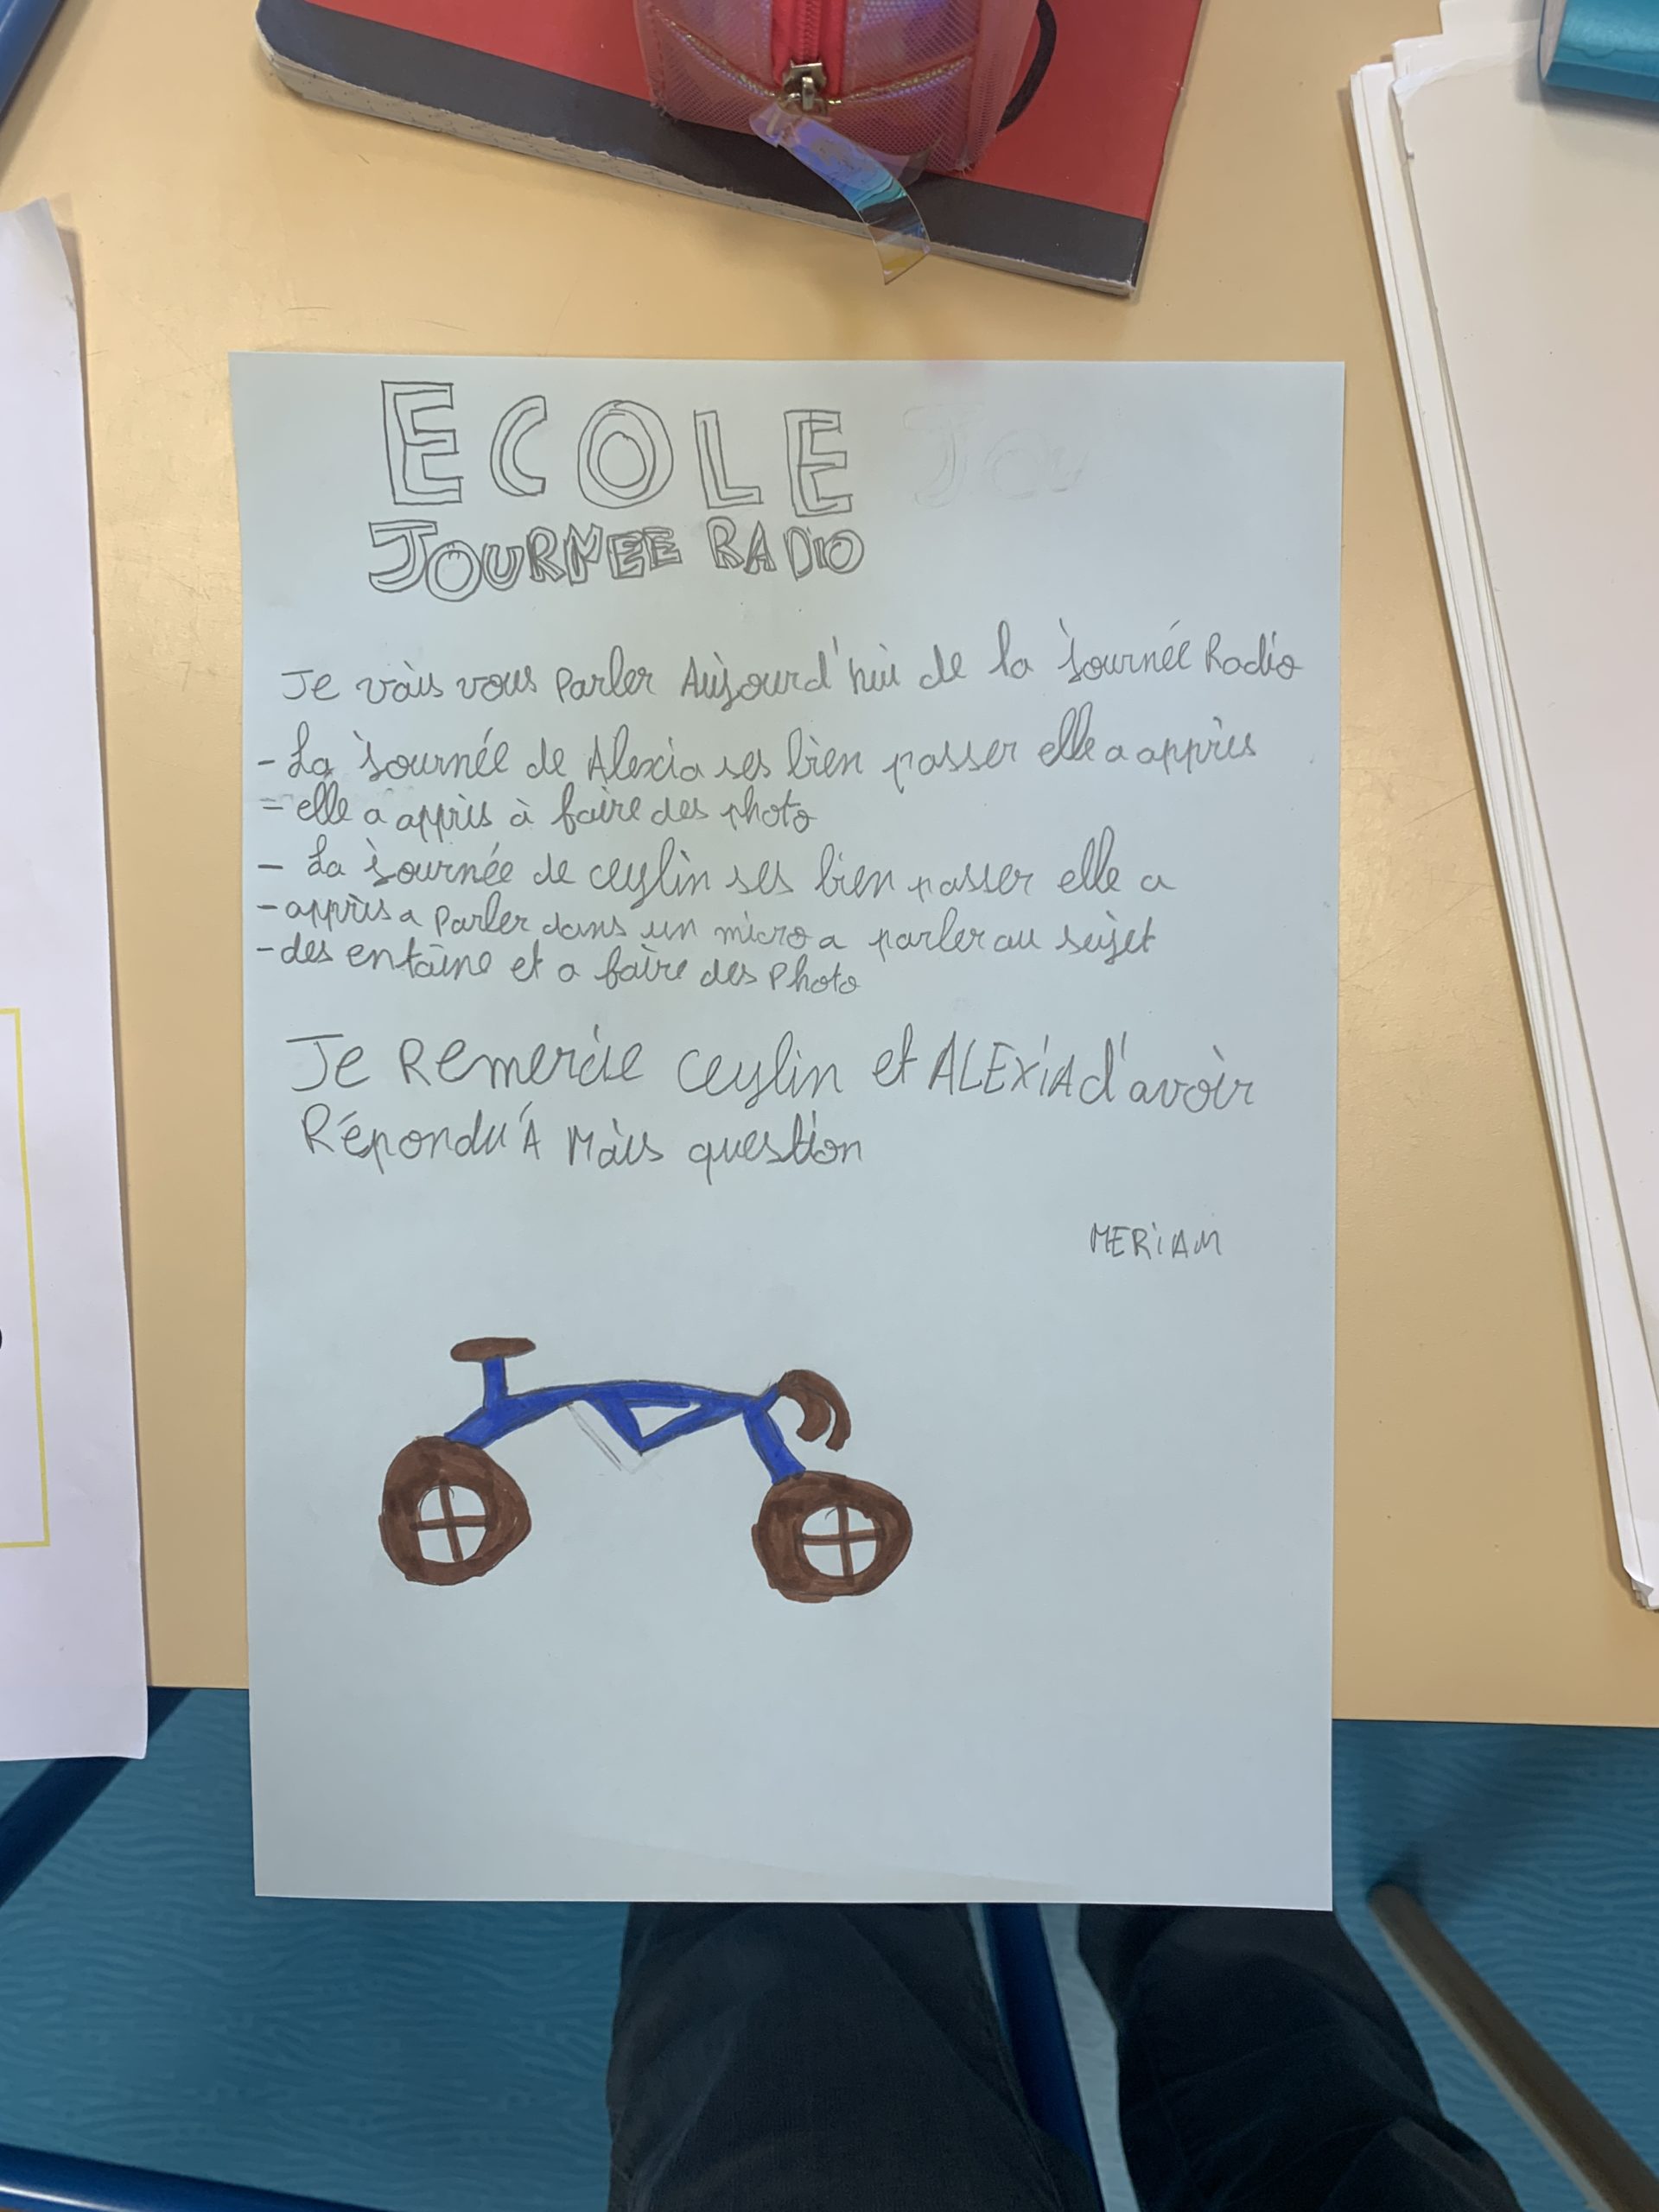 ECOLE Jou
JOURNEE RADIO
Je vais vous Parler Aujourd'hui de la journée Radio
- La journée de Alexia ses bien passer elle a appris
- elle a appris à faire des photo
- La journée de ceylin ses bien passer elle a
- appris a Parler dans un micro a parler au sujet
- des entaine et a faire des Photo
Je Remercie Ceylin et ALEXiA d'avoir
Répondu À Mais question
MERiAM